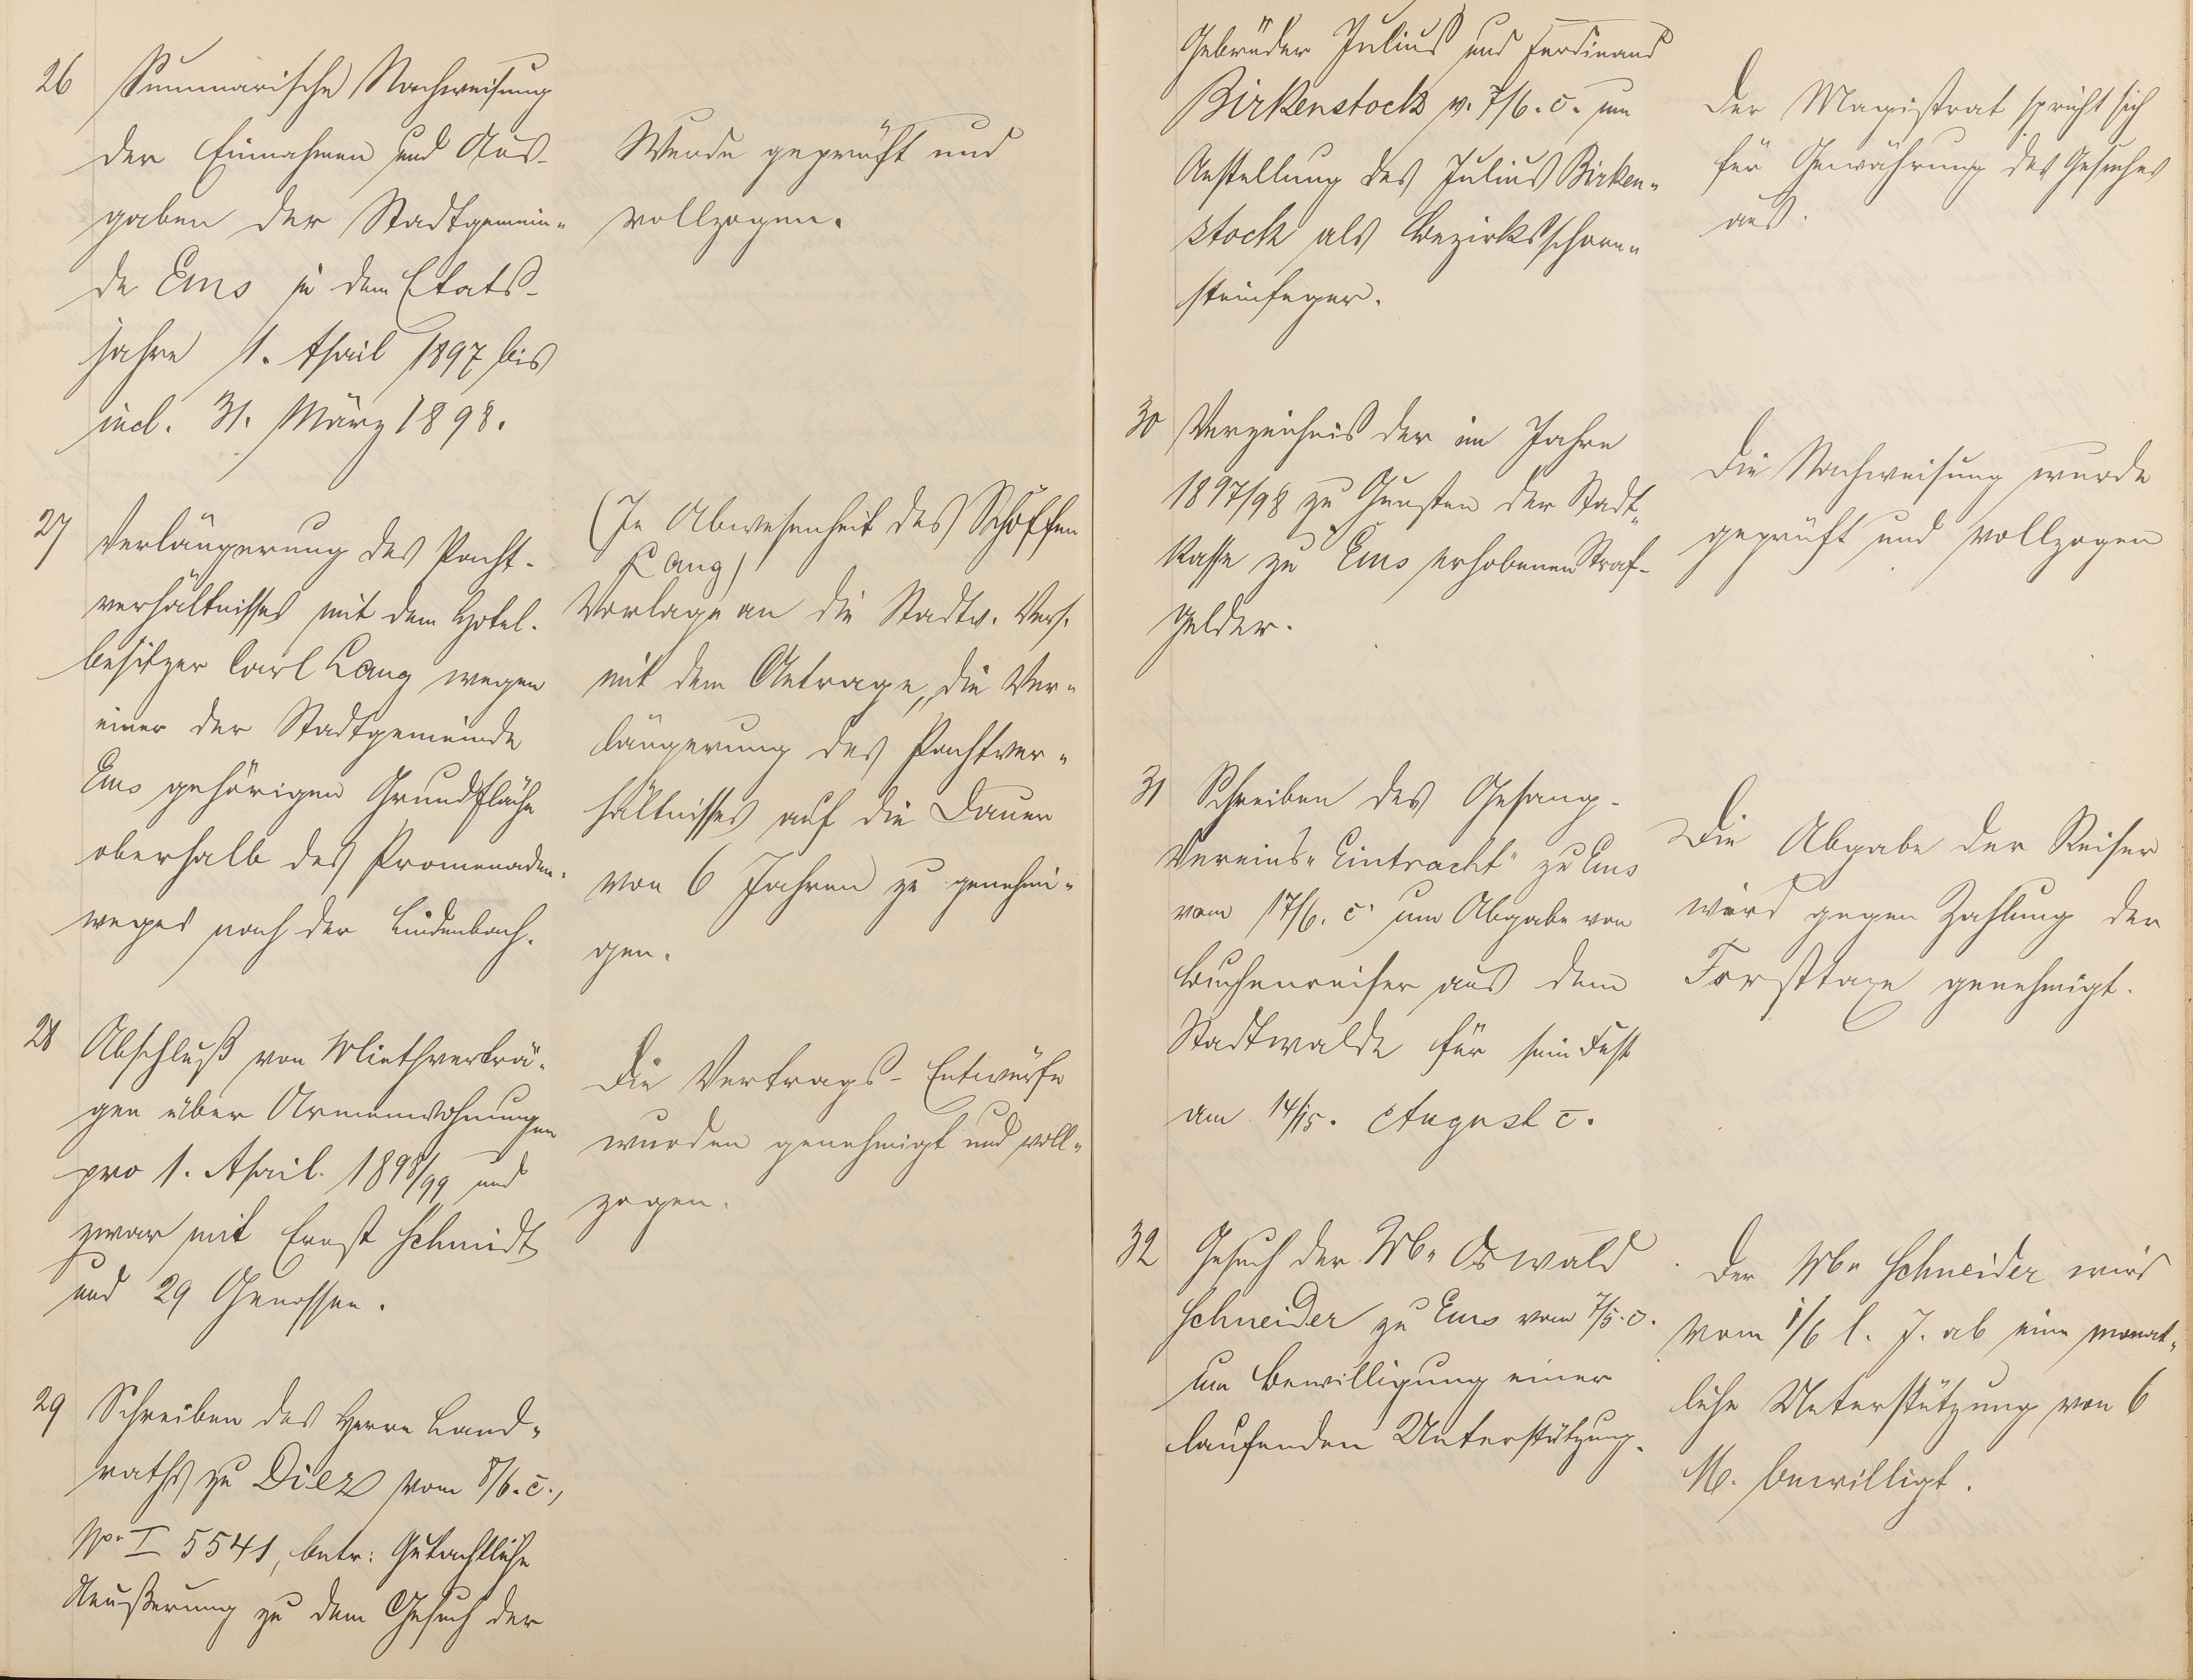 26 Summarische Nachweisung
der Einnahmen und Aus-
gaben der Stadtgemein-
de Ems in dem Etats-
jahre 1. April 1897 bis
incl. 31. März 1898.
Wurde geprüft und
vollzogen.
27 Verlängerung des Pacht-
verhältnisses mit dem Hotel-
besitzer Carl Lang wegen
einer der Stadtgemeinde
Ems gehörigen Grundfläche
oberhalb des Promenaden-
weges nach der Lindenbach.
(In Abwesenheit des Schöffen
Lang)
Vorlage an die Stadtv. Vers.
mit dem Antrage, die Ver-
längerung des Pachtver-
hältnisses auf die Dauer
von 6 Jahren zu genehmi-
gen.
28 Abschluß von Miethverträ-
gen über Armenwohnungen
pro 1. April 1898/99 und
zwar mit Ernst Schmidt
und 29 Genossen.
Die Vertrags-Entwürfe
wurden genehmigt und voll-
zogen.
29 Schreiben des Herrn Land-
raths zu Diez vom 8/6. c.,
No I 5541, betr: Gutachtliche
Aeußerung zu dem Gesuch der
Gebrüder Julius und Ferdinand
Birkenstock v. 7/6. c. um
Anstellung des Julius Birken-
stock als Bezirksschorn-
steinfeger.
Der Magistrat spricht sich
für Gewährung des Gesuches
aus.
30 Verzeichnis der im Jahre
1897/98 zu Gunsten der Stadt-
kasse zu Ems erhobenen Straf-
gelder.
Die Nachweisung wurde
geprüft und vollzogen
31 Schreiben des Gesang-
Vereins "Eintracht" zu Ems
vom 17/6. c. um Abgabe von
Buchenreiser aus dem
Stadtwalde für sein Fest
am 14/15. August c.
Die Abgabe der Reiser
wird gegen Zahlung der
Forsttaxe genehmigt.
32 Gesuch der Ww. Oswald
Schneider zu Ems vom 7/5. c.
um Bewilligung einer
laufenden Unterstützung.
Der Ww. Schneider wird
vom 1/6 l. J. ab eine monat-
liche Unterstützung von 6
M. bewilligt.